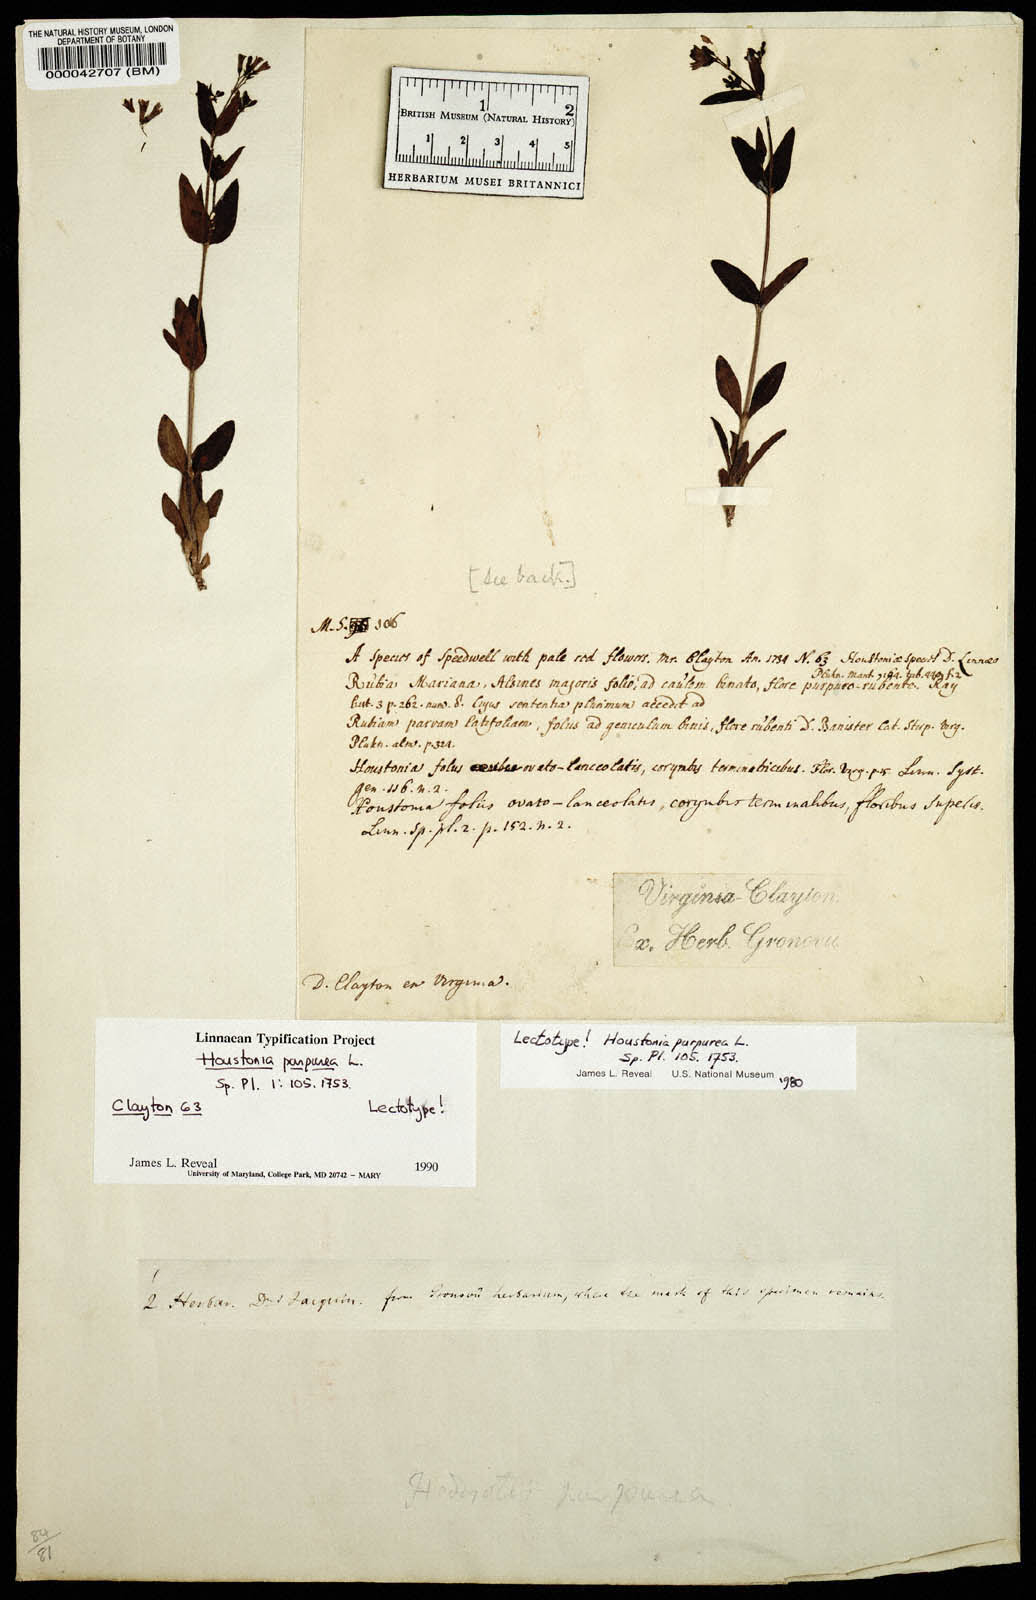 THE NATURAL HISTORY MUSEUM, LONDON
DEPARTMENT OF BOTANY
000042707 (BM)
1 2
BRITISH MUSEUM (NATURAL HISTORY)
1 2 3 4 5
HERBARIUM MUSEI BRITANNICI
[See back.]
M.S. 306
A Species of Speedwell with pale red flowers. Mr. Clayton An. 1734 N. 63 Houstoniæ D. Linnæo
Plukn. Mant. f. 2
Rubia Mariana, Alsines majoris folio, ad caulem binato, flore purpuro-rubente. Ray
hist. 3 p. 262. num. 8. Cujus sententia plurimum accedit ad
Rubiam parvam latifoliam, foliis ad geniculum binis, flore rubenti D. Banister Cat. Stirp. Virg.
Plukn. alm. p. 324.
Houstonia foliis ovato-lanceolatis, corymbis terminatricibus. Flor. Virg. p. 15 Linn. Syst.
gen. 116. n. 2.
Houstonia foliis ovato-lanceolatis, corymbis terminalibus, floribus superis.
Linn. Sp. pl. 2. p. 152. n. 2.
Virginia-Clayton
Ex. Herb. Gronovii
D. Clayton en Virginia.
Linnaean Typification Project
Houstonia purpurea L.
Sp. Pl. 1: 105. 1753.
Clayton 63 Lectotype!
James L. Reveal 1990
University of Maryland, College Park, MD 20742 – MARY
Lectotype! Houstonia purpurea L.
Sp. Pl. 105. 1753.
James L. Reveal U.S. National Museum 1980
1
2 Herbar. Dni Jacquin. from Gronovii herbarium, where the mark of this specimen remains.
Hedyotis purpurea
84/81